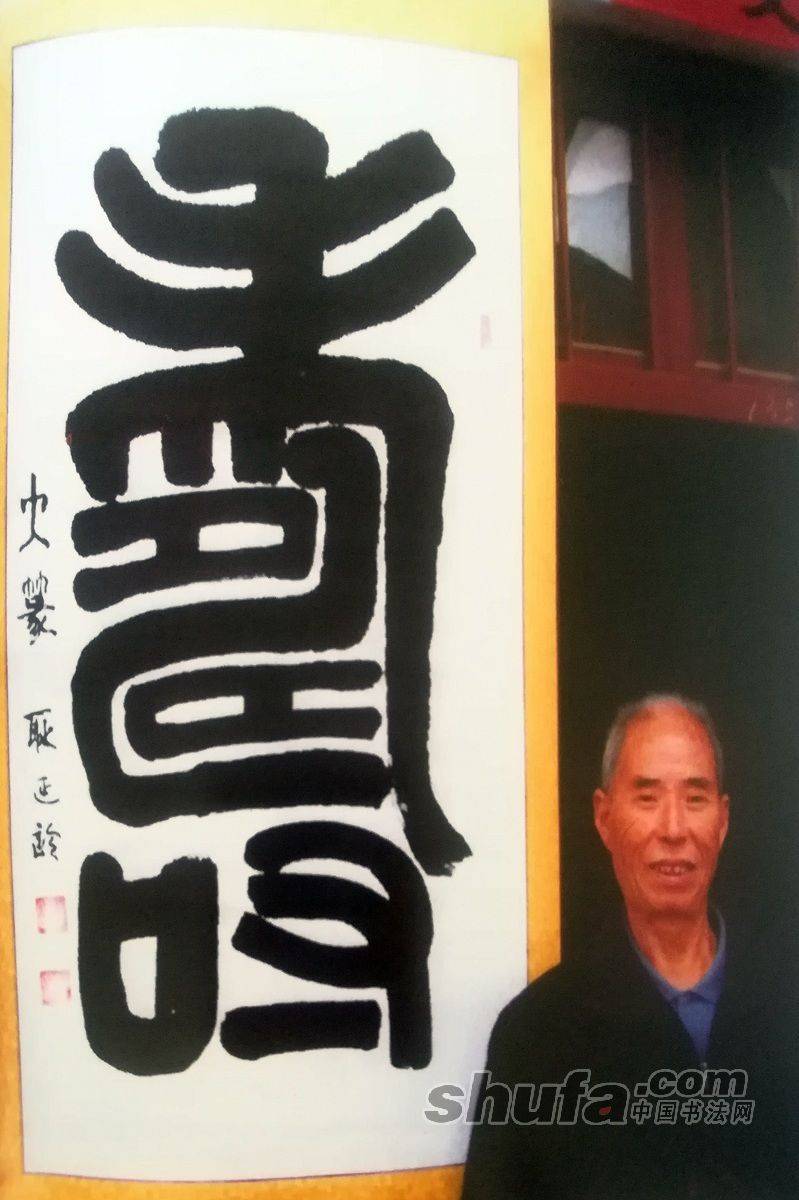 壽
史篆 耿延龄
shufa.com
中国书法网